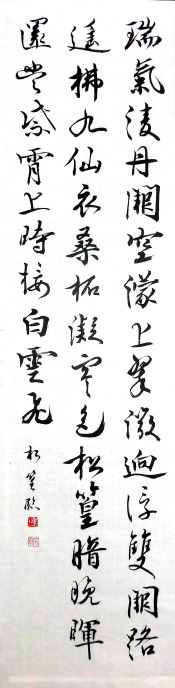 瑞氣淩丹閣空濛上翠微迥浮雙闕路
遙拂九仙衣桑柘凝寒色松篁暗晚暉
還當紫霄上時接白雲飛